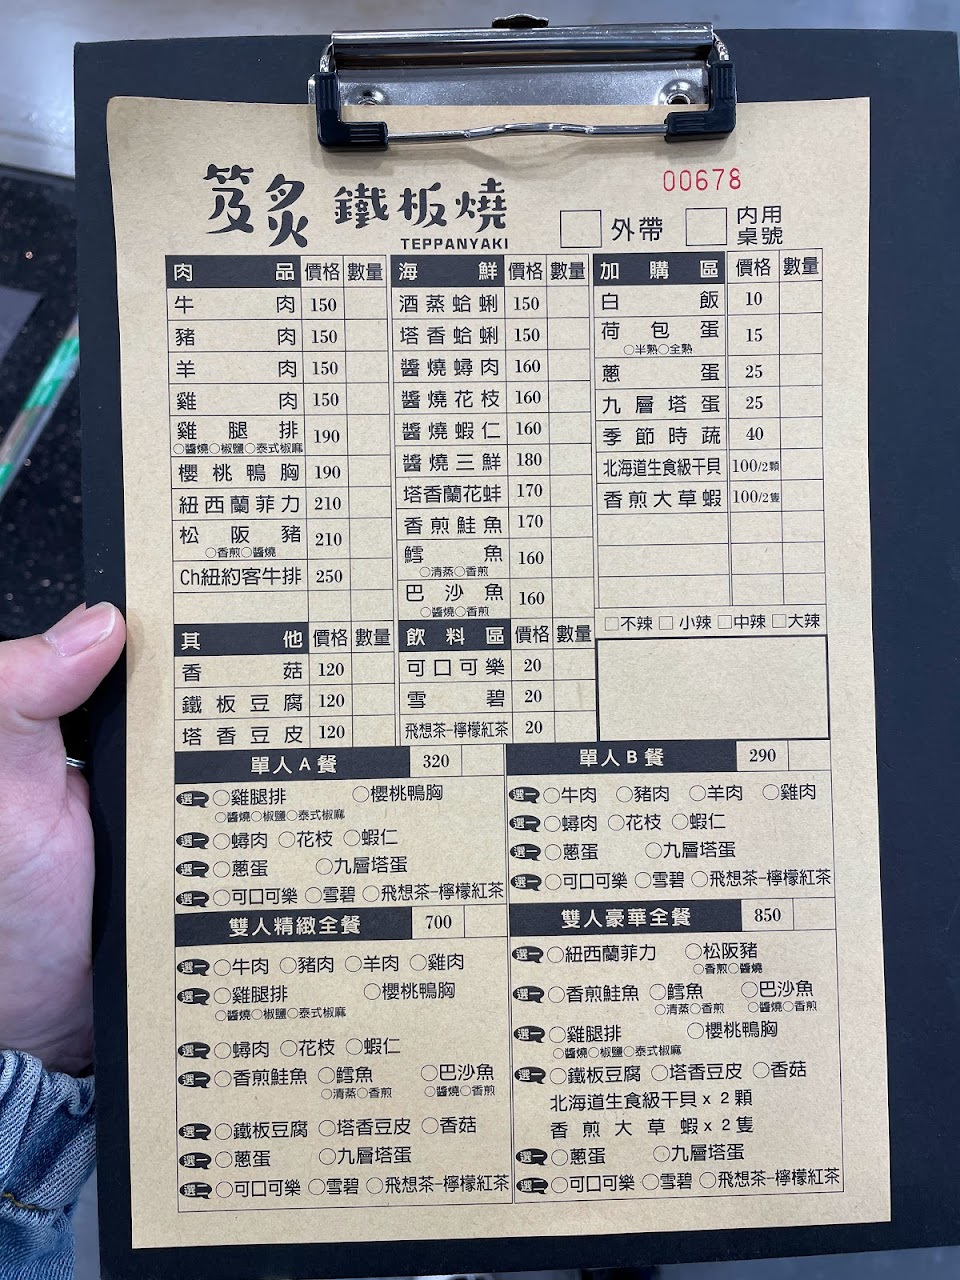 笈炙 鐵板燒
TEPPANYAKI
00678
外帶 內用桌號
肉品 價格 數量
牛肉 150
豬肉 150
羊肉 150
雞肉 150
雞腿排 190
○醬燒○椒鹽○泰式椒麻
櫻桃鴨胸 190
紐西蘭菲力 210
松阪豬 210
○香煎○醬燒
Ch紐約客牛排 250
海鮮 價格 數量
酒蒸蛤蜊 150
塔香蛤蜊 150
醬燒蟳肉 160
醬燒花枝 160
醬燒蝦仁 160
醬燒三鮮 180
塔香蘭花蚌 170
香煎鮭魚 170
鱈魚 160
○清蒸○香煎
巴沙魚 160
○醬燒○香煎
加購區 價格 數量
白飯 10
荷包蛋 15
○半熟○全熟
蔥蛋 25
九層塔蛋 25
季節時蔬 40
北海道生食級干貝 100/2顆
香煎大草蝦 100/2隻
□不辣 □小辣 □中辣 □大辣
其他 價格 數量
香菇 120
鐵板豆腐 120
塔香豆皮 120
飲料區 價格 數量
可口可樂 20
雪碧 20
飛想茶-檸檬紅茶 20
單人A餐 320
選一 ○雞腿排 ○櫻桃鴨胸
○醬燒○椒鹽○泰式椒麻
選一 ○蟳肉 ○花枝 ○蝦仁
選一 ○蔥蛋 ○九層塔蛋
選一 ○可口可樂 ○雪碧 ○飛想茶-檸檬紅茶
單人B餐 290
選一 ○牛肉 ○豬肉 ○羊肉 ○雞肉
選一 ○蟳肉 ○花枝 ○蝦仁
選一 ○蔥蛋 ○九層塔蛋
選一 ○可口可樂 ○雪碧 ○飛想茶-檸檬紅茶
雙人精緻全餐 700
選一 ○牛肉 ○豬肉 ○羊肉 ○雞肉
選一 ○雞腿排 ○櫻桃鴨胸
○醬燒○椒鹽○泰式椒麻
選一 ○蟳肉 ○花枝 ○蝦仁
選一 ○香煎鮭魚 ○鱈魚 ○巴沙魚
○清蒸○香煎 ○醬燒○香煎
選一 ○鐵板豆腐 ○塔香豆皮 ○香菇
選一 ○蔥蛋 ○九層塔蛋
選二 ○可口可樂 ○雪碧 ○飛想茶-檸檬紅茶
雙人豪華全餐 850
選一 ○紐西蘭菲力 ○松阪豬
○香煎○醬燒
選一 ○香煎鮭魚 ○鱈魚 ○巴沙魚
○清蒸○香煎 ○醬燒○香煎
選一 ○雞腿排 ○櫻桃鴨胸
○醬燒○椒鹽○泰式椒麻
選一 ○鐵板豆腐 ○塔香豆皮 ○香菇
北海道生食級干貝 x 2 顆
香煎大草蝦 x 2 隻
選一 ○蔥蛋 ○九層塔蛋
選二 ○可口可樂 ○雪碧 ○飛想茶-檸檬紅茶